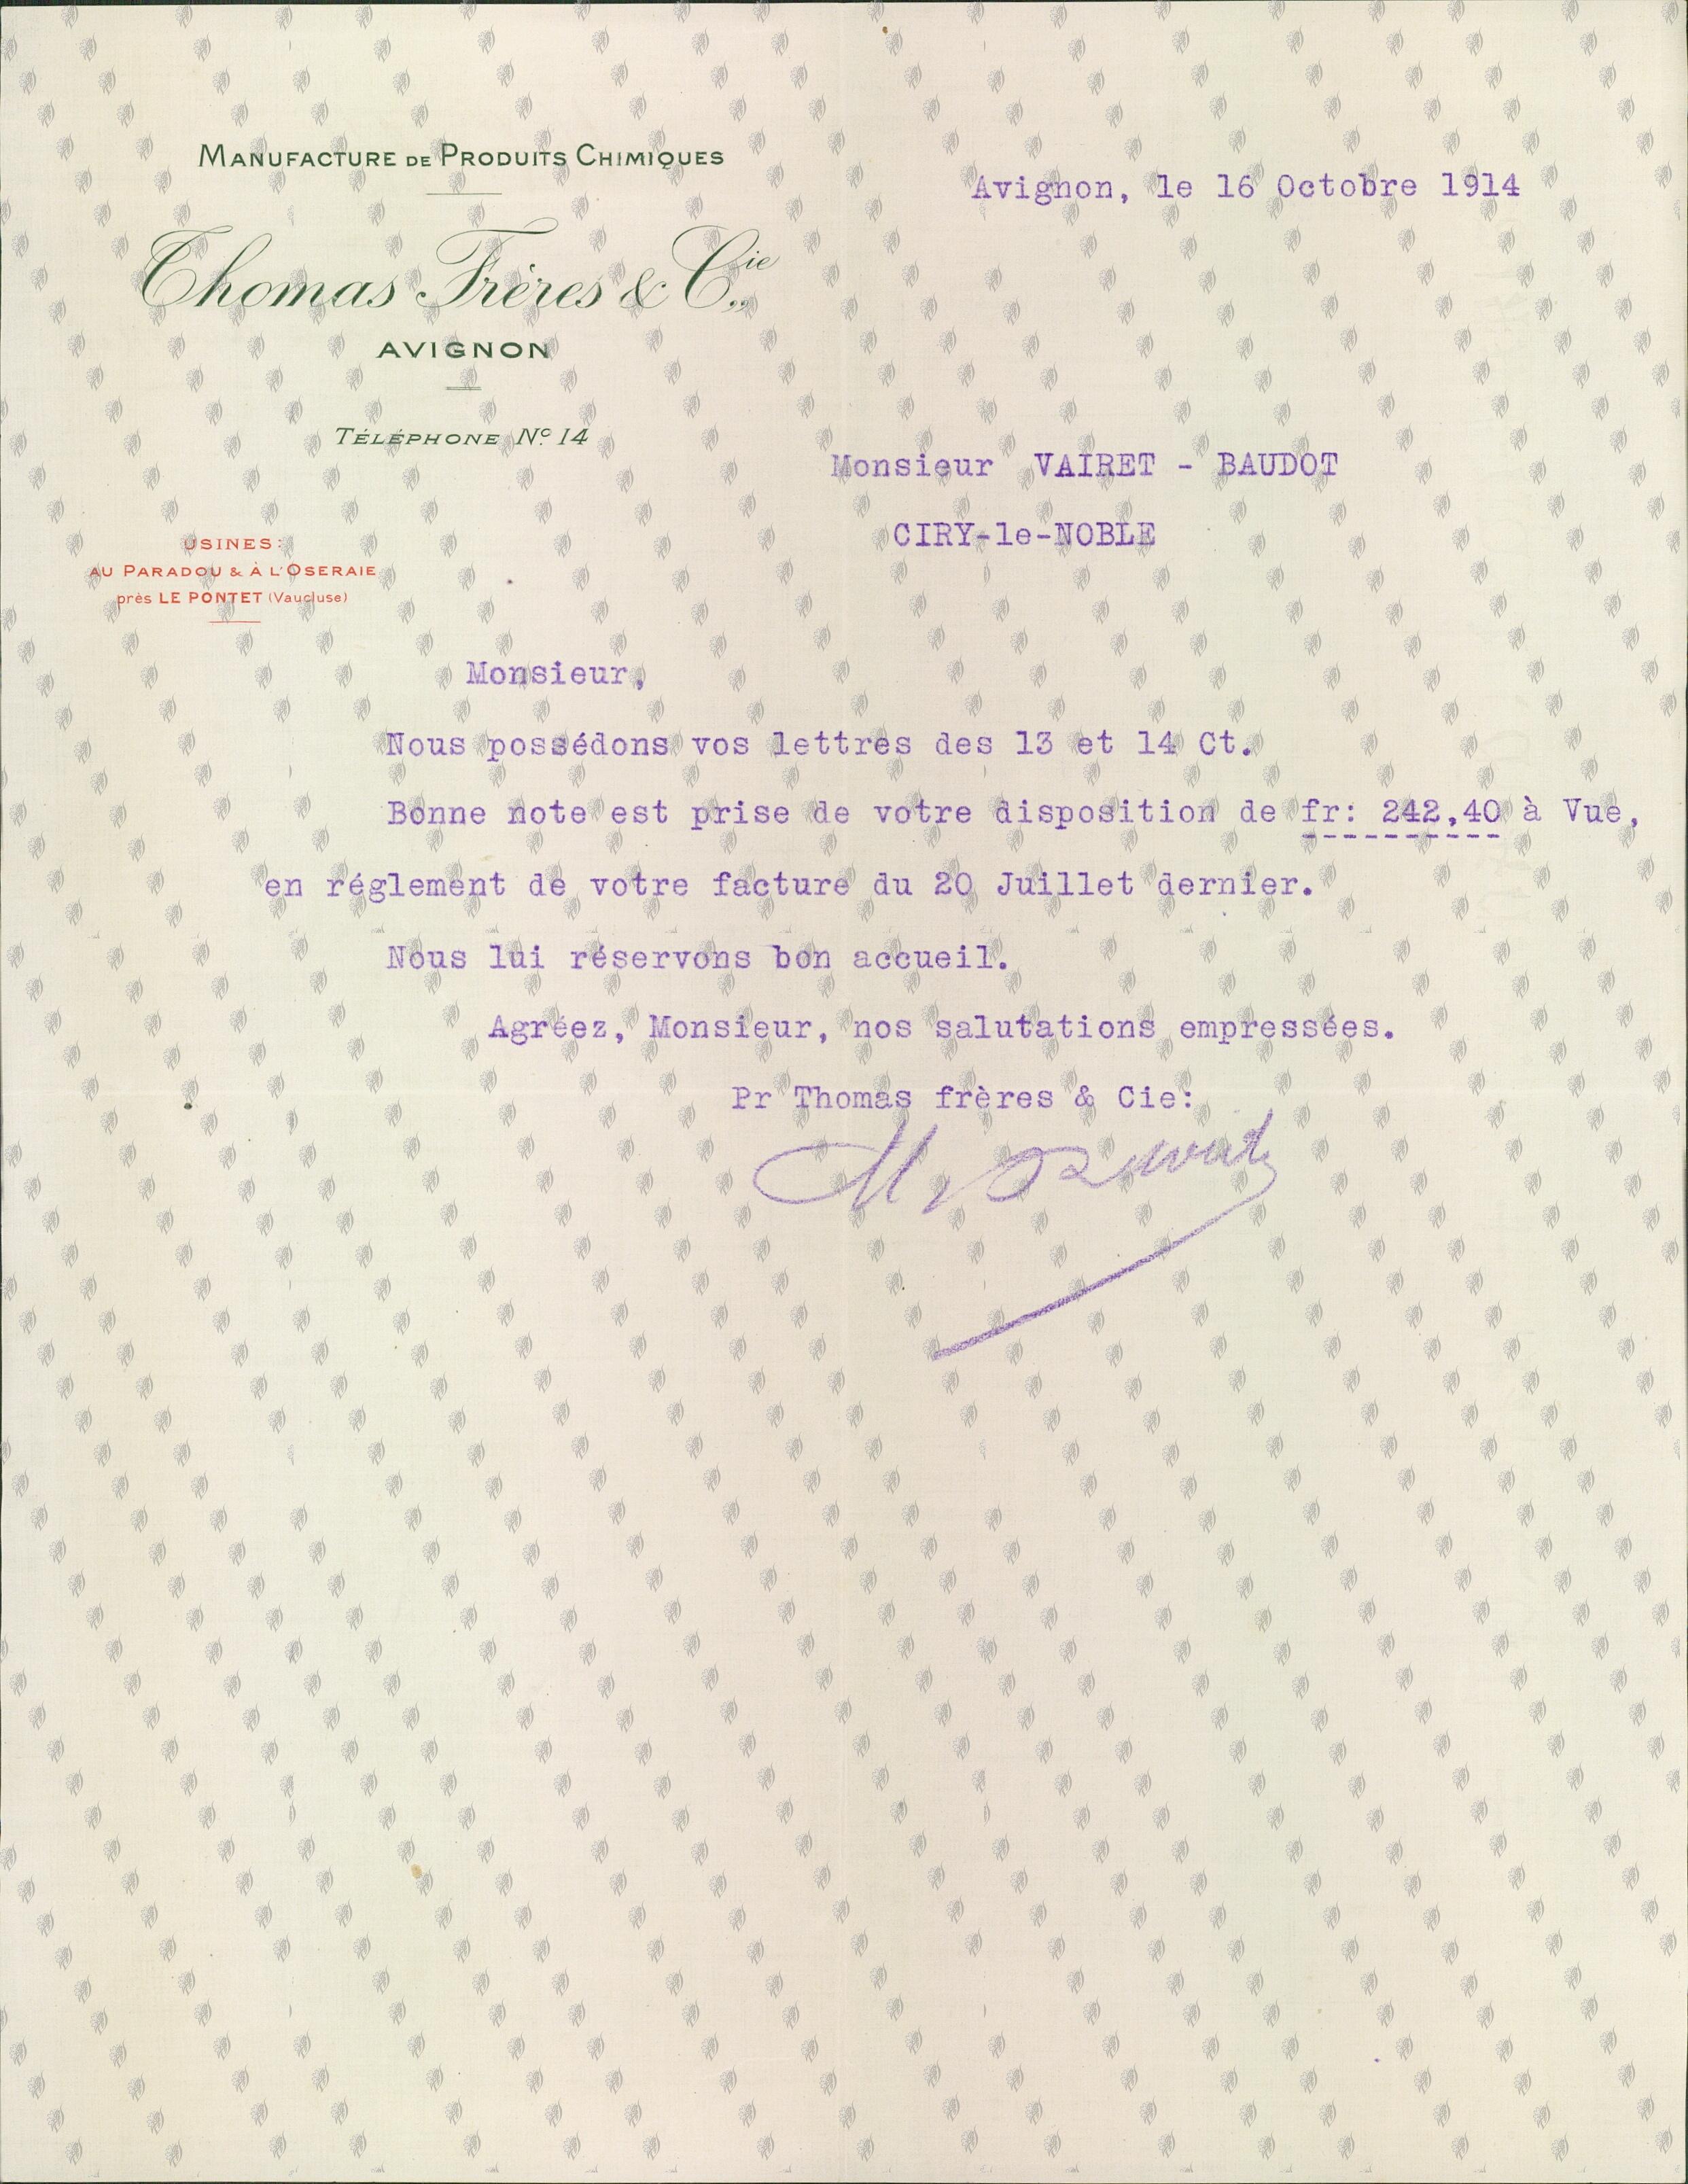 MANUFACTURE DE PRODUITS CHIMIQUES
Thomas Frères & Cie
AVIGNON
TÉLÉPHONE No 14
USINES:
AU PARADOU & À L'OSERAIE
près LE PONTET (Vaucluse)
Avignon, le 16 Octobre 1914
Monsieur VAIRET - BAUDOT
CIRY-le-NOBLE
Monsieur,
Nous possédons vos lettres des 13 et 14 Ct.
Bonne note est prise de votre disposition de fr: 242,40 à Vue,
en réglement de votre facture du 20 Juillet dernier.
Nous lui réservons bon accueil.
Agréez, Monsieur, nos salutations empressées.
Pr Thomas frères & Cie: